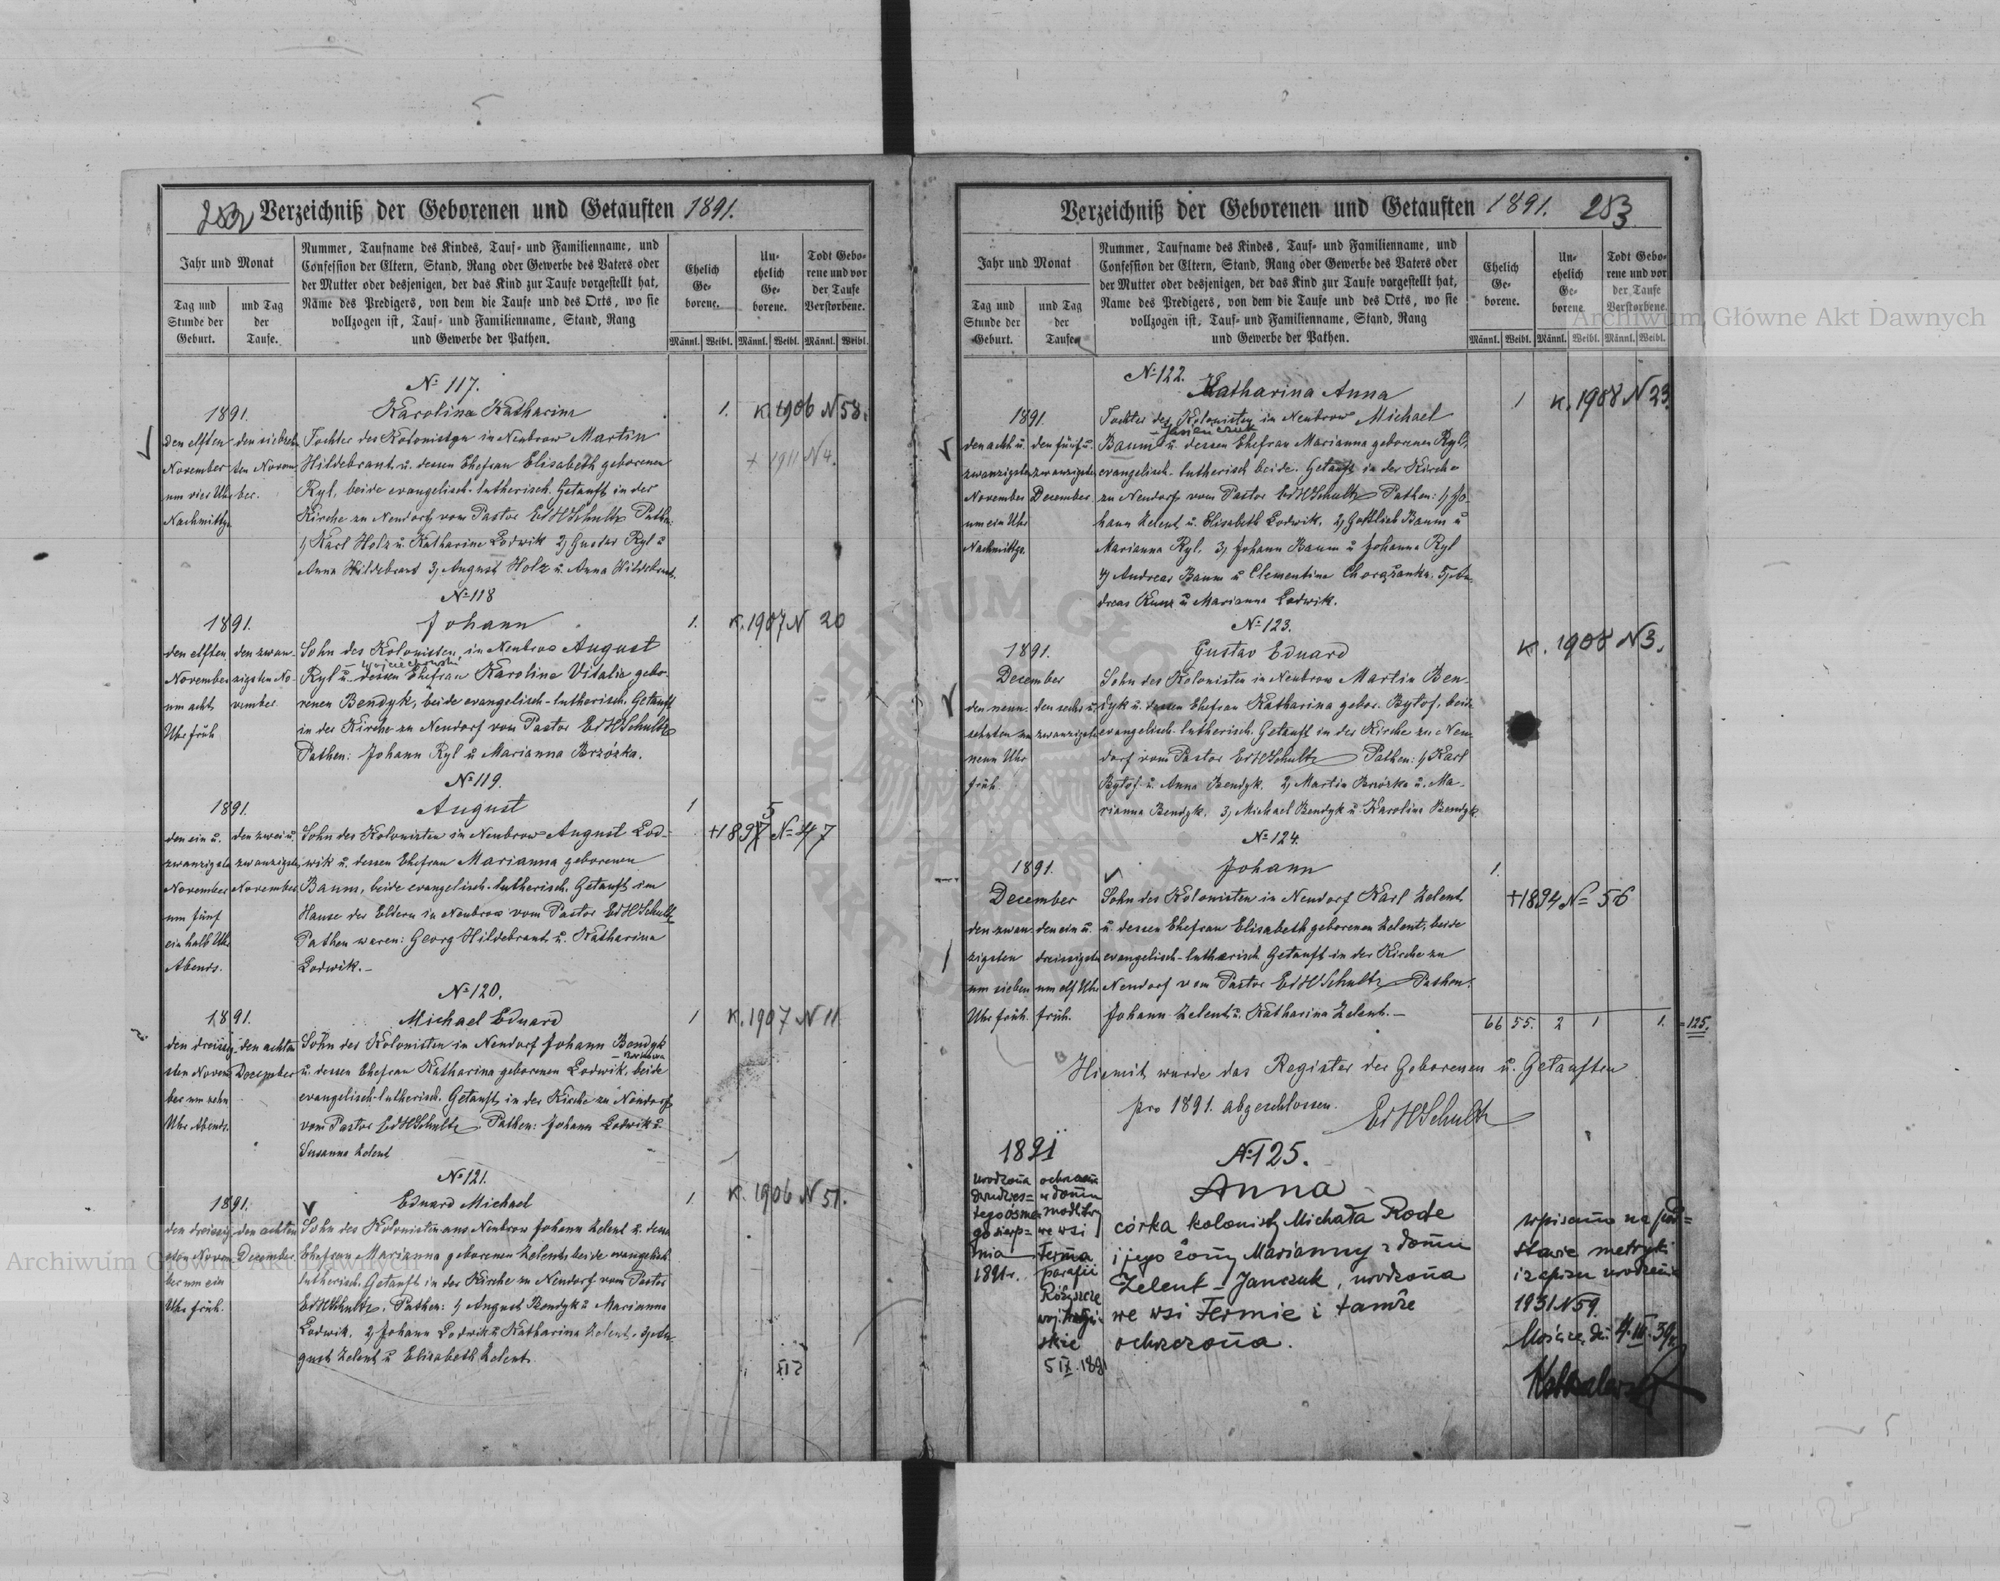 252 Verzeichniß der Geborenen und Getauften 1891.
Jahr und Monat
Tag und Stunde der Geburt.
und Tag der Taufe.
Nummer, Taufname des Kindes, Tauf- und Familienname, und
Confession der Eltern, Stand, Rang oder Gewerbe des Vaters oder
der Mutter oder desjenigen, der das Kind zur Taufe vorgestellt hat,
Name des Predigers, von dem die Taufe und des Orts, wo sie
vollzogen ist, Tauf- und Familienname, Stand, Rang
und Gewerbe der Pathen.
Ehelich Geborene.
Unehelich Geborene.
Todt Geborene und vor der Taufe Verstorbene.
Männl. Weibl. Männl. Weibl. Männl. Weibl.
№ 117.
Karolina Katharina
1. K. 1906 N 58.
+ 1911 N 4.
1891.
den elften
November
um vier Uhr
Nachmittgs
den siebzehn
ten Novem
ber.
Tochter des Kolonisten in Neubrow Martin
Hildebrant u. dessen Ehefrau Elisabeth geborenen
Ryl, beide evangelisch-lutherisch. Getauft in der
Kirche zu Neudorf vom Pastor EdHSchultz Pathen:
1, Karl Holz u. Katharina Lodwik 2, Gustav Ryl u
Anna Hildebrand 3, August Holz u. Anna Hildebrant.
№ 118
Johann
1. K. 1907 N 20
1891.
den elften
November
um acht
Uhr früh
den zwan-
zigsten No-
vember
Sohn des Kolonisten in Neubrow August
Ryl u. dessen Ehefrau Karolina Vitalia gebo-
- Wojciechowski
renen Bendyk, beide evangelisch-lutherisch. Getauft
in der Kirche zu Neudorf vom Pastor EdHSchultz
Pathen: Johann Ryl u Marianna Brzózka.
№ 119.
August
1 +1895 № 47
1891.
den ein u.
zwanzigsten
November
um fünf
ein halb Uhr
Abends.
den zwei u.
zwanzigsten
November
Sohn des Kolonisten in Neubrow August Lod-
wik u. dessen Ehefrau Marianna geborenen
Baum, beide evangelisch-lutherisch. Getauft im
Hause der Eltern in Neubrow vom Pastor EdHSchultz
Pathen waren: Georg Hildebrant u. Katharina
Lodwik.-
№ 120.
Michael Eduard
1 K. 1907 N 11
1891.
den dreissig-
sten Novem
ber um zehn
Uhr Abends.
den achten
December
Sohn des Kolonisten in Neudorf Johann Bendyk
u. dessen Ehefrau Katharina geborenen Lodwik, beide
evangelisch-lutherisch. Getauft in der Kirche zu Neudorf
vom Pastor EdHSchultz Pathen: Johann Lodwik u.
Susanna Zelent
№ 121.
Eduard Michael
1. K. 1906 N 51.
1891.
den dreissig-
sten Novem
ber um ein
Uhr früh.
den achten
December
Sohn des Kolonisten aus Neubrow Johann Zelent u. dessen
Ehefrau Marianna geborenen Zelent, beide evangelisch
lutherisch. Getauft in der Kirche zu Neudorf vom Pastor
EdHSchultz. Pathen: 1, August Bendyk u Marianna
Lodwik. 2, Johann Lodwik u Katharina Zelent. 3, Au-
gust Zelent u Elisabeth Zelent.
Verzeichniß der Geborenen und Getauften 1891. 253
Jahr und Monat
Tag und Stunde der Geburt.
und Tag der Taufe.
Nummer, Taufname des Kindes, Tauf- und Familienname, und
Confession der Eltern, Stand, Rang oder Gewerbe des Vaters oder
der Mutter oder desjenigen, der das Kind zur Taufe vorgestellt hat,
Name des Predigers, von dem die Taufe und des Orts, wo sie
vollzogen ist, Tauf- und Familienname, Stand, Rang
und Gewerbe der Pathen.
Ehelich Geborene.
Unehelich Geborene.
Todt Geborene und vor der Taufe Verstorbene.
Männl. Weibl. Männl. Weibl. Männl. Weibl.
№ 122.
Katharina Anna
1 K. 1908 N 23.
1891.
den acht u.
zwanzigsten
November
um ein Uhr
Nachmittgs.
den fünf u.
zwanzigsten
December.
Tochter des Kolonisten in Neubrow Michael
Baum u. dessen Ehefrau Marianna geborenen Ryl,
evangelisch-lutherisch beide. Getauft in der Kirche
zu Neudorf vom Pastor EdHSchultz Pathen: 1, Jo-
hann Zelent u. Elisabeth Lodwik. 2, Gottlieb Baum u
Marianna Ryl. 3, Johann Baum u Johanna Ryl
4, Andreas Baum u Clementine Chorązanka. 5, An-
dreas Kunz u Marianna Lodwik.
№ 123.
Gustav Eduard
K. 1908 N 3.
1891.
December
den neun-
zehnten um
neun Uhr
früh
den sechs u.
zwanzigsten
Sohn des Kolonisten in Neubrow Martin Ben-
dyk u. dessen Ehefrau Katharina gebor. Bytof, beide
evangelisch-lutherisch. Getauft in der Kirche zu Neu-
dorf vom Pastor EdHSchultz Pathen: 1, Karl
Bytof u. Anna Bendyk. 2, Martin Brzózka u. Ma-
rianna Bendyk. 3, Michael Bendyk u Karolina Bendyk
№ 124.
Johann
1. +1894 № 56
1891.
December
den zwan-
zigsten
um sieben
Uhr früh.
den ein u.
dreissigsten
um elf Uhr
früh.
Sohn des Kolonisten in Neudorf Karl Zelent
u. dessen Ehefrau Elisabeth geborenen Zelent, beide
evangelisch-lutherisch. Getauft in der Kirche zu
Neudorf vom Pastor EdHSchultz Pathen:
Johann Zelent u. Katharina Zelent.-
66 55. 2 1 1. =125.
Hiemit wurde das Register der Geborenen u. Getauften
pro 1891. abgeschlossen. EdHSchultz
№ 125.
Anna
1891
urodzona
dwudzies-
tego ósme-
go sierp-
nia
1891 r.
w domu
modlitwy
we wsi
Ferma
parafii
Różyszcze
5 IX. 1891
córka kolonisty Michała Rode
i jego żony Marianny z domu
Zelent-Janczuk, urodzona
we wsi Fermie i tamże
ochrzczona.
wpisano na pod-
stawie metryki
i zapisu urodzenia
1931 N 59.
Archiwum Główne Akt Dawnych
Archiwum Główne Akt Dawnych